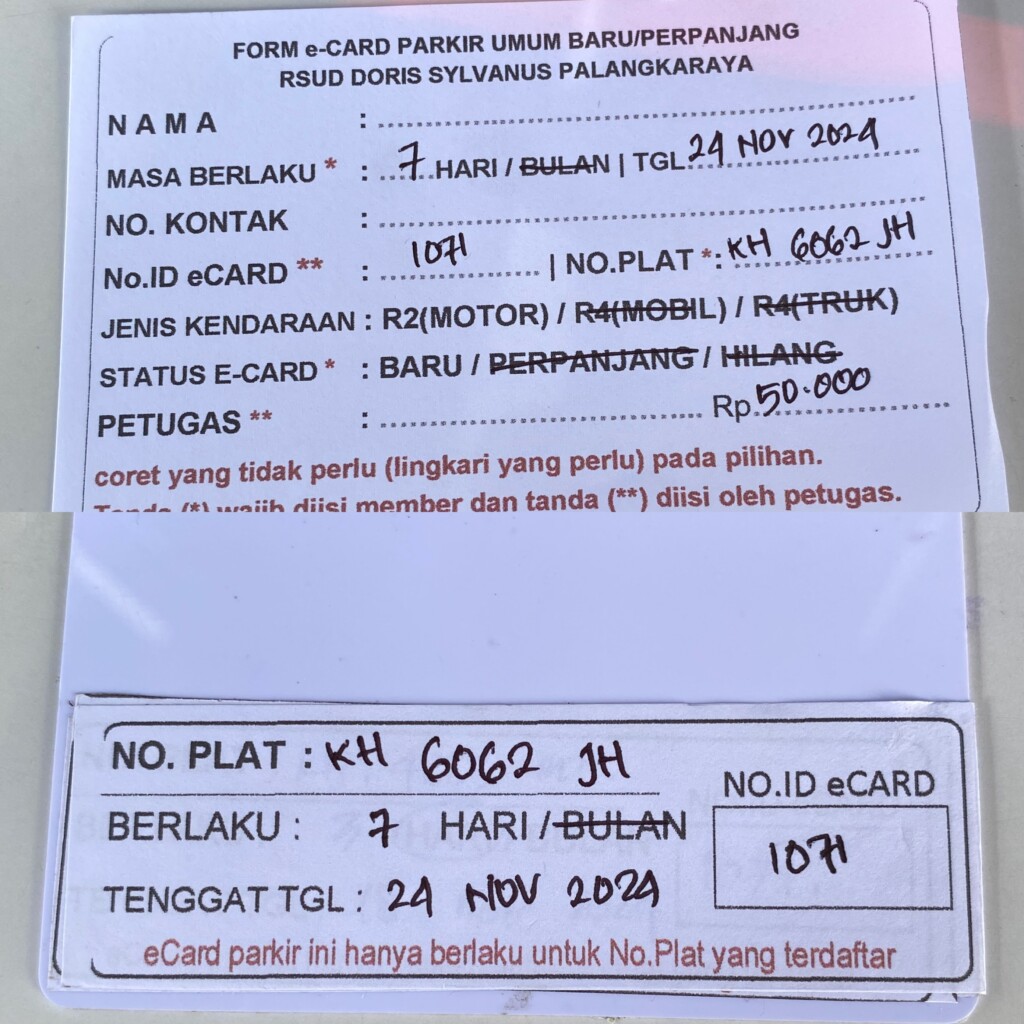 FORM e-CARD PARKIR UMUM BARU/PERPANJANG
RSUD DORIS SYLVANUS PALANGKARAYA
N A M A :
MASA BERLAKU * : 7 HARI / BULAN | TGL 24 NOV 2024
NO. KONTAK :
No.ID eCARD ** : 1071 | NO.PLAT *: KH 6062 JH
JENIS KENDARAAN : R2(MOTOR) / R4(MOBIL) / R4(TRUK)
STATUS E-CARD * : BARU / PERPANJANG / HILANG
PETUGAS ** : Rp. 50.000
coret yang tidak perlu (lingkari yang perlu) pada pilihan.
Tanda (*) wajib diisi member dan tanda (**) diisi oleh petugas.
NO. PLAT : KH 6062 JH
NO.ID eCARD
BERLAKU : 7 HARI / BULAN
1071
TENGGAT TGL : 24 NOV 2024
eCard parkir ini hanya berlaku untuk No.Plat yang terdaftar